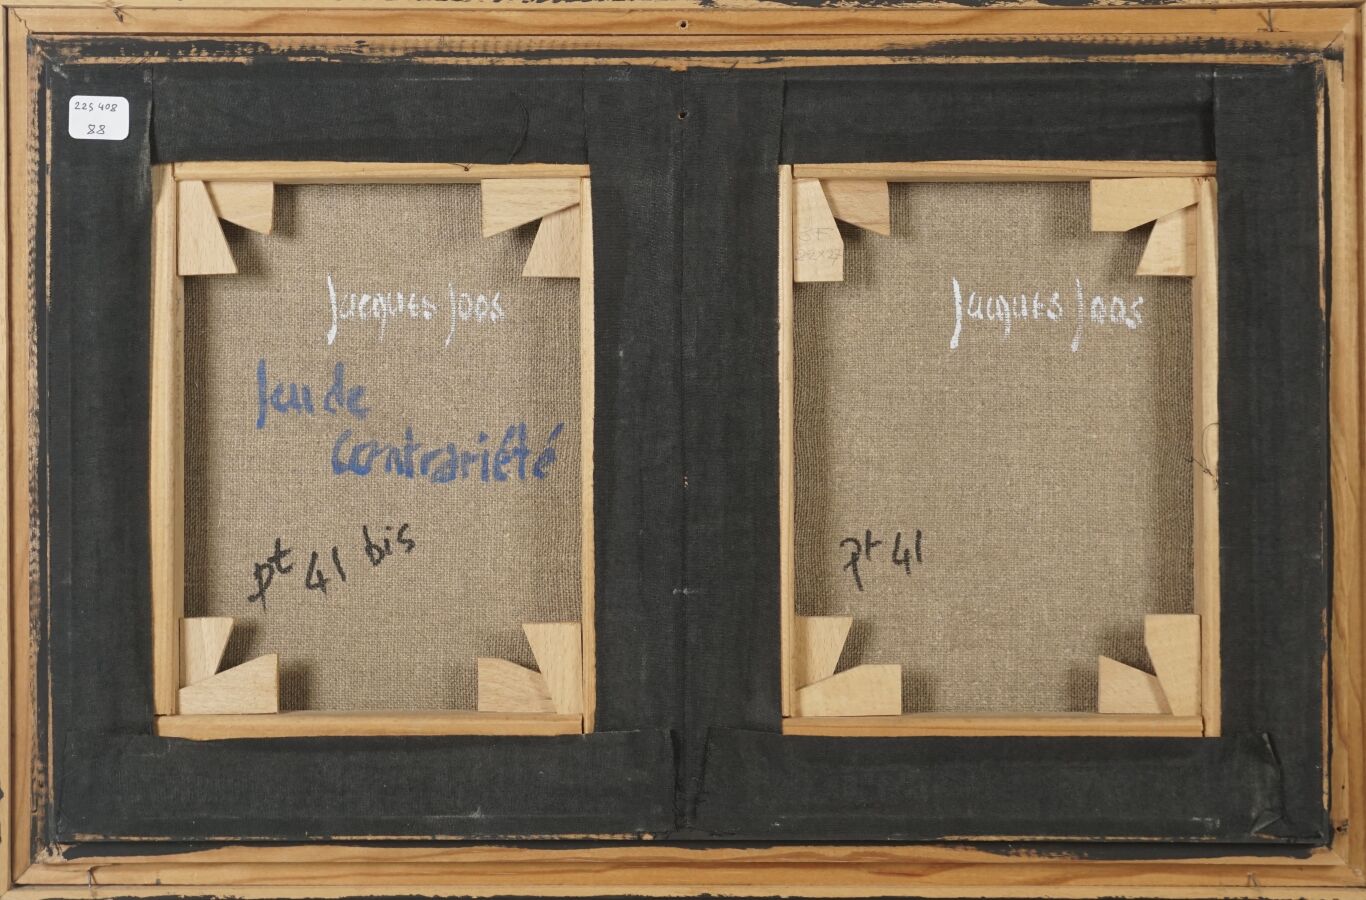 225 408
88
Jacques Joos
Jeu de
contrariété
pt 41 bis
5F
22x27
Jacques Joos
pt 41